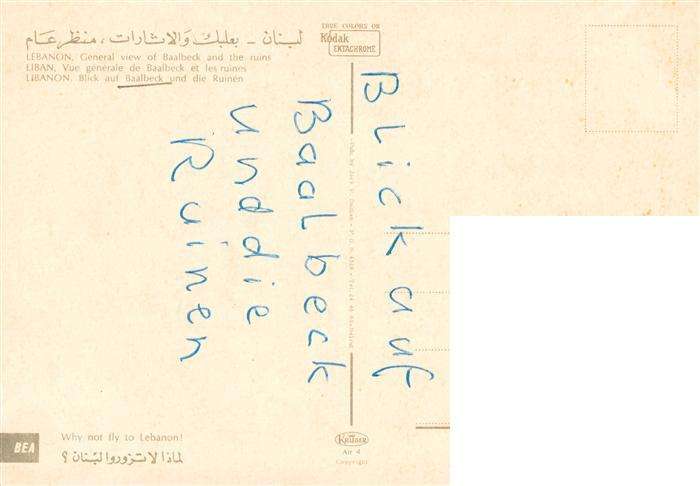 لبنان - بعلبك والاثارات، منظر عام
LEBANON, General view of Baalbeck and the ruins
LIBAN, Vue générale de Baalbeck et les ruines
LIBANON. Blick auf Baalbeck und die Ruinen
TRUE COLORS ON
Kodak
EKTACHROME
Blick auf
Baalbeck
und die
Ruinen
BEA
Why not fly to Lebanon!
لماذا لا تزوروا لبنان ؟
KRÜGER
Air 4
Copyright